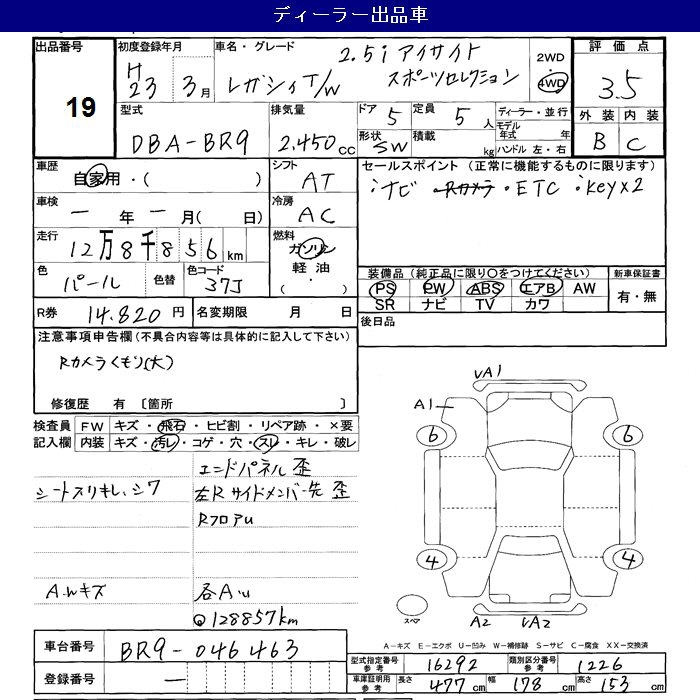 ディーラー出品車
出品番号 19
初度登録年月 H23年 3月
車名・グレード レガシィT/W 2.5i アイサイト スポーツセレクション
2WD 4WD
評価点 3.5
外装 B 内装 C
型式 DBA-BR9
排気量 2.450cc
ドア 5 定員 5人
形状 SW 積載 kg
ディーラー・並行
モデル年式 年
ハンドル 左・右
車歴 自家用・( )
シフト AT
セールスポイント (正常に機能するものに限ります)
・ナビ ・Rカメラ ・ETC ・key×2
車検 ー年ー月( )
冷房 AC
走行 12万8千856km
燃料 ガソリン 軽油 ( ・ )
色 パール 色替 色コード 37J
装備品(純正品に限り○をつけてください)
PS PW ABS エアB AW
SR ナビ TV カワ
新車保証書 有・無
R券 14.820円 名変期限 月 日
後日品
注意事項申告欄(不具合内容等は具体的に記入して下さい)
Rカメラくもり(大)
修復歴 有 〔箇所 〕
検査員記入欄
FW キズ・飛石・ヒビ割・リペア跡・×要
内装 キズ・汚レ・コゲ・穴・スレ・キレ・破レ
エンドパネル歪
シートスリキレ、シワ 左Rサイドメンバー先歪
RフロアU
A.Wキズ 各AU
◎128857km
UA1
A1
6 6
4 4
スペア
A2 UA2
車台番号 BR9-046463
登録番号 ー
A−キズ E−エクボ U−凹み W−補修跡 S−サビ C−腐食 XX−交換済
型式指定番号 参考 16292 類別区分番号 参考 1226
車庫証明用 参考 長さ 477cm 幅 178cm 高さ 153cm